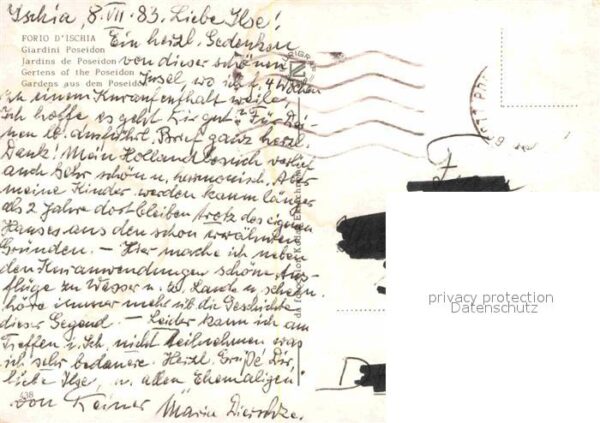 Ischia, 8.VII.83. Liebe Ilse!
FORIO D'ISCHIA
Giardini Poseidon
Jardins de Poseidon
Gertens of the Poseidon
Gardens aus dem Poseidon
Ein herzl. Gedenken
von dieser schönen
Insel, wo ich f. 4 Wochen
zu einem Kuraufenthalt weile.
Ich hoffe, es geht Dir gut? Für Dei-
nen lb. ausführl. Brief ganz herzl.
Dank! Mein Hollandbesuch verlief
auch sehr schön u. harmonisch. Aber
meine Kinder werden kaum länger
als 2 Jahre dort bleiben trotz des eigenen
Hauses aus den schon erwähnten
Gründen. — Hier mache ich neben
den Kuranwendungen schöne Aus-
flüge zu Wasser u. zu Lande u.
höre immer mehr üb. die Geschichte
dieser Gegend. — Leider kann ich am
Treffen i. Sch. nicht teilnehmen was
ich sehr bedauere. Herzl. Grüße Dir,
liebe Ilse, u. allen Ehemaligen
von Deiner Maria
438
D
privacy protection
Datenschutz